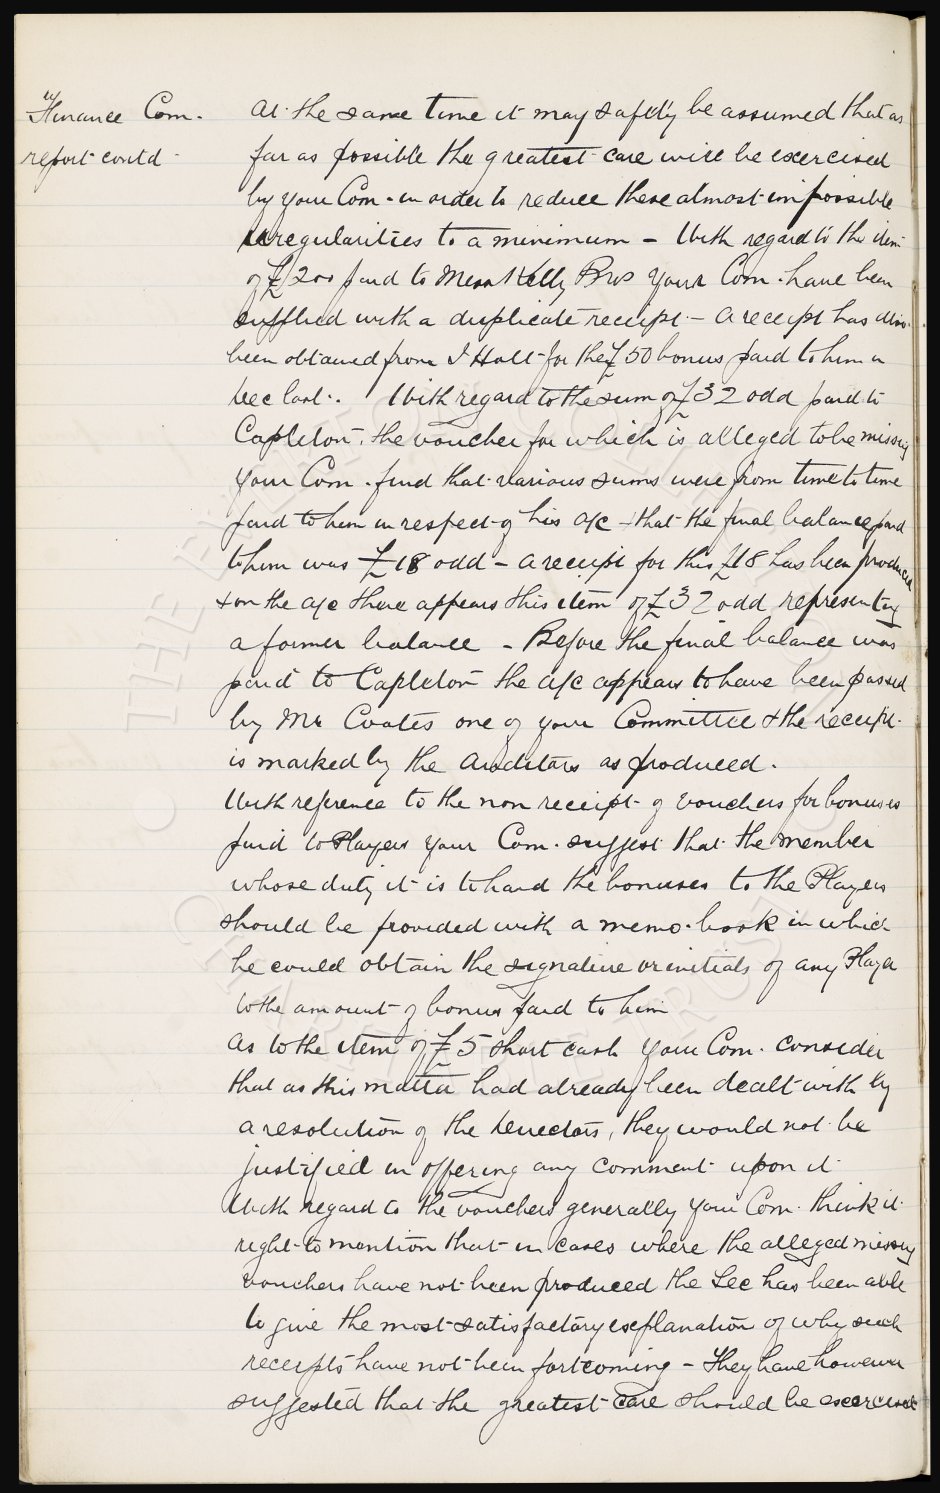 Finance Com.
report contd
At the same time it may safely be assumed that as
far as possible the greatest care will be exercised
by your Com. in order to reduce these almost impossible
irregularities to a minimum - With regard to the item
of £200 paid to Messrs Kelly Bros your Com. have been
supplied with a duplicate receipt - A receipt has also
been obtained from J Holt for the £50 bonus paid to him in
Dec last. With regard to the sum of £32 odd paid to
Capleton, the voucher for which is alleged to be missing
your Com. find that various sums were from time to time
paid to him in respect of his a/c + that the final balance paid
to him was £18 odd - a receipt for this £18 has been produced
+ on the a/c there appears this item of £32 odd representing
a former balance - Before the final balance was
paid to Capleton the a/c appears to have been passed
by Mr Coates one of your Committee + the receipt
is marked by the Auditors as produced.
With reference to the non receipt of vouchers for bonuses
paid to Players your Com. suggest that the member
whose duty it is to hand the bonuses to the Players
should be provided with a memo. book in which
he could obtain the signature or initials of any Player
to the amount of bonus paid to him
As to the item of £5 short cash your Com. consider
that as this matter had already been dealt with by
a resolution of the Directors, they would not be
justified in offering any comment upon it
With regard to the vouchers generally your Com. think it
right to mention that in cases where the alleged missing
vouchers have not been produced the Sec has been able
to give the most satisfactory explanation of why such
receipts have not been fortcoming - They have however
suggested that the greatest care should be exercised
THE EVERTON COLLECTION
CHARITABLE TRUST